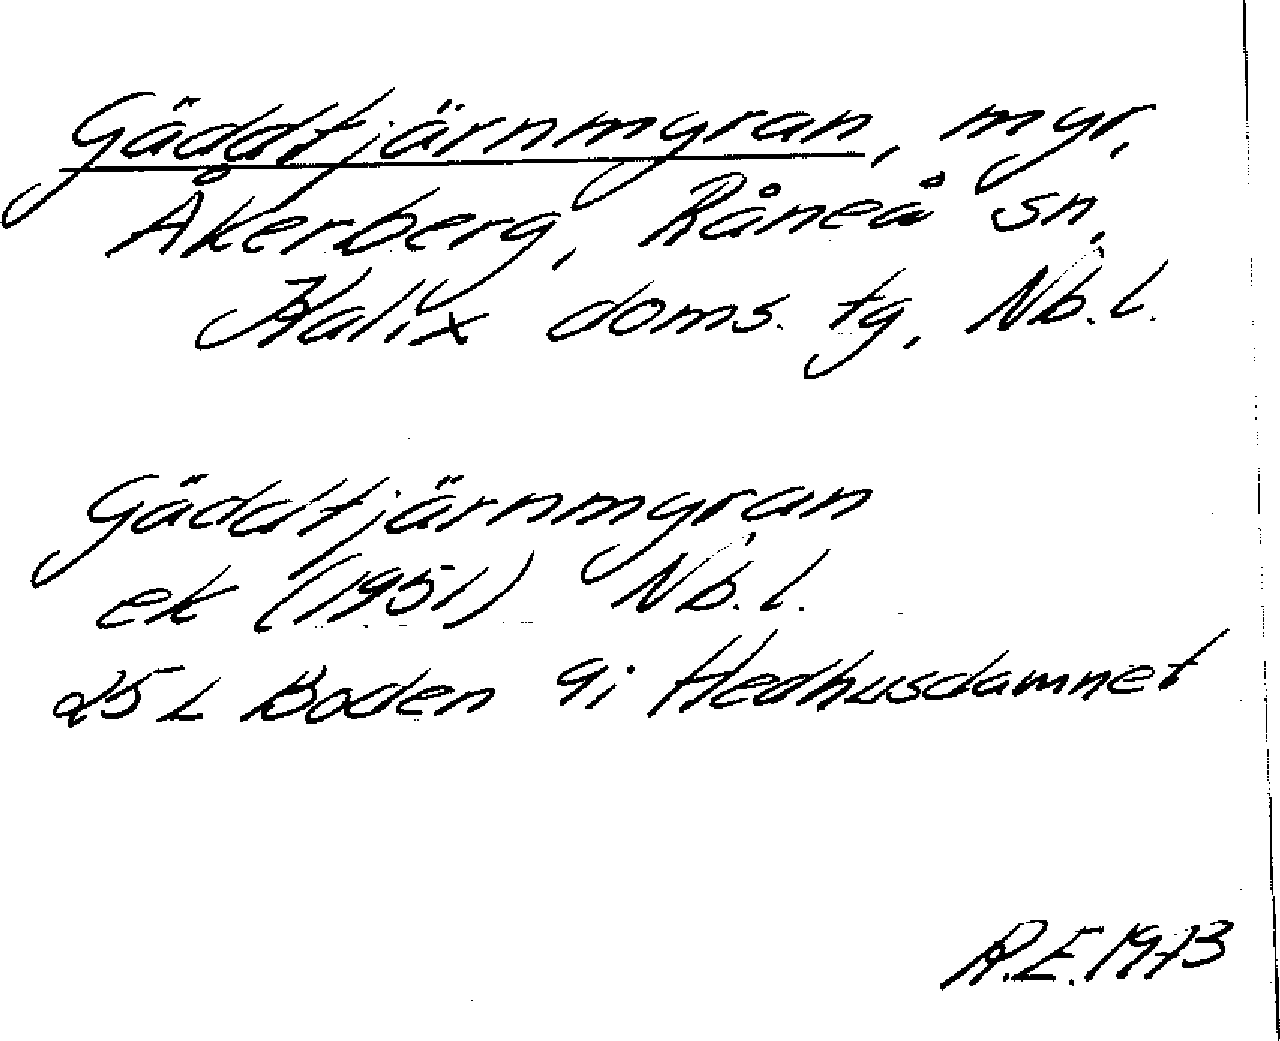 Gäddtjärnmyran, myr,
Åkerberg, Råneå sn,
Kalix doms. tg, Nb.l.
Gäddtjärnmyran
ek (1951) Nb.l.
25 L Boden 9i Hedhusdamnet
R.E. 1973